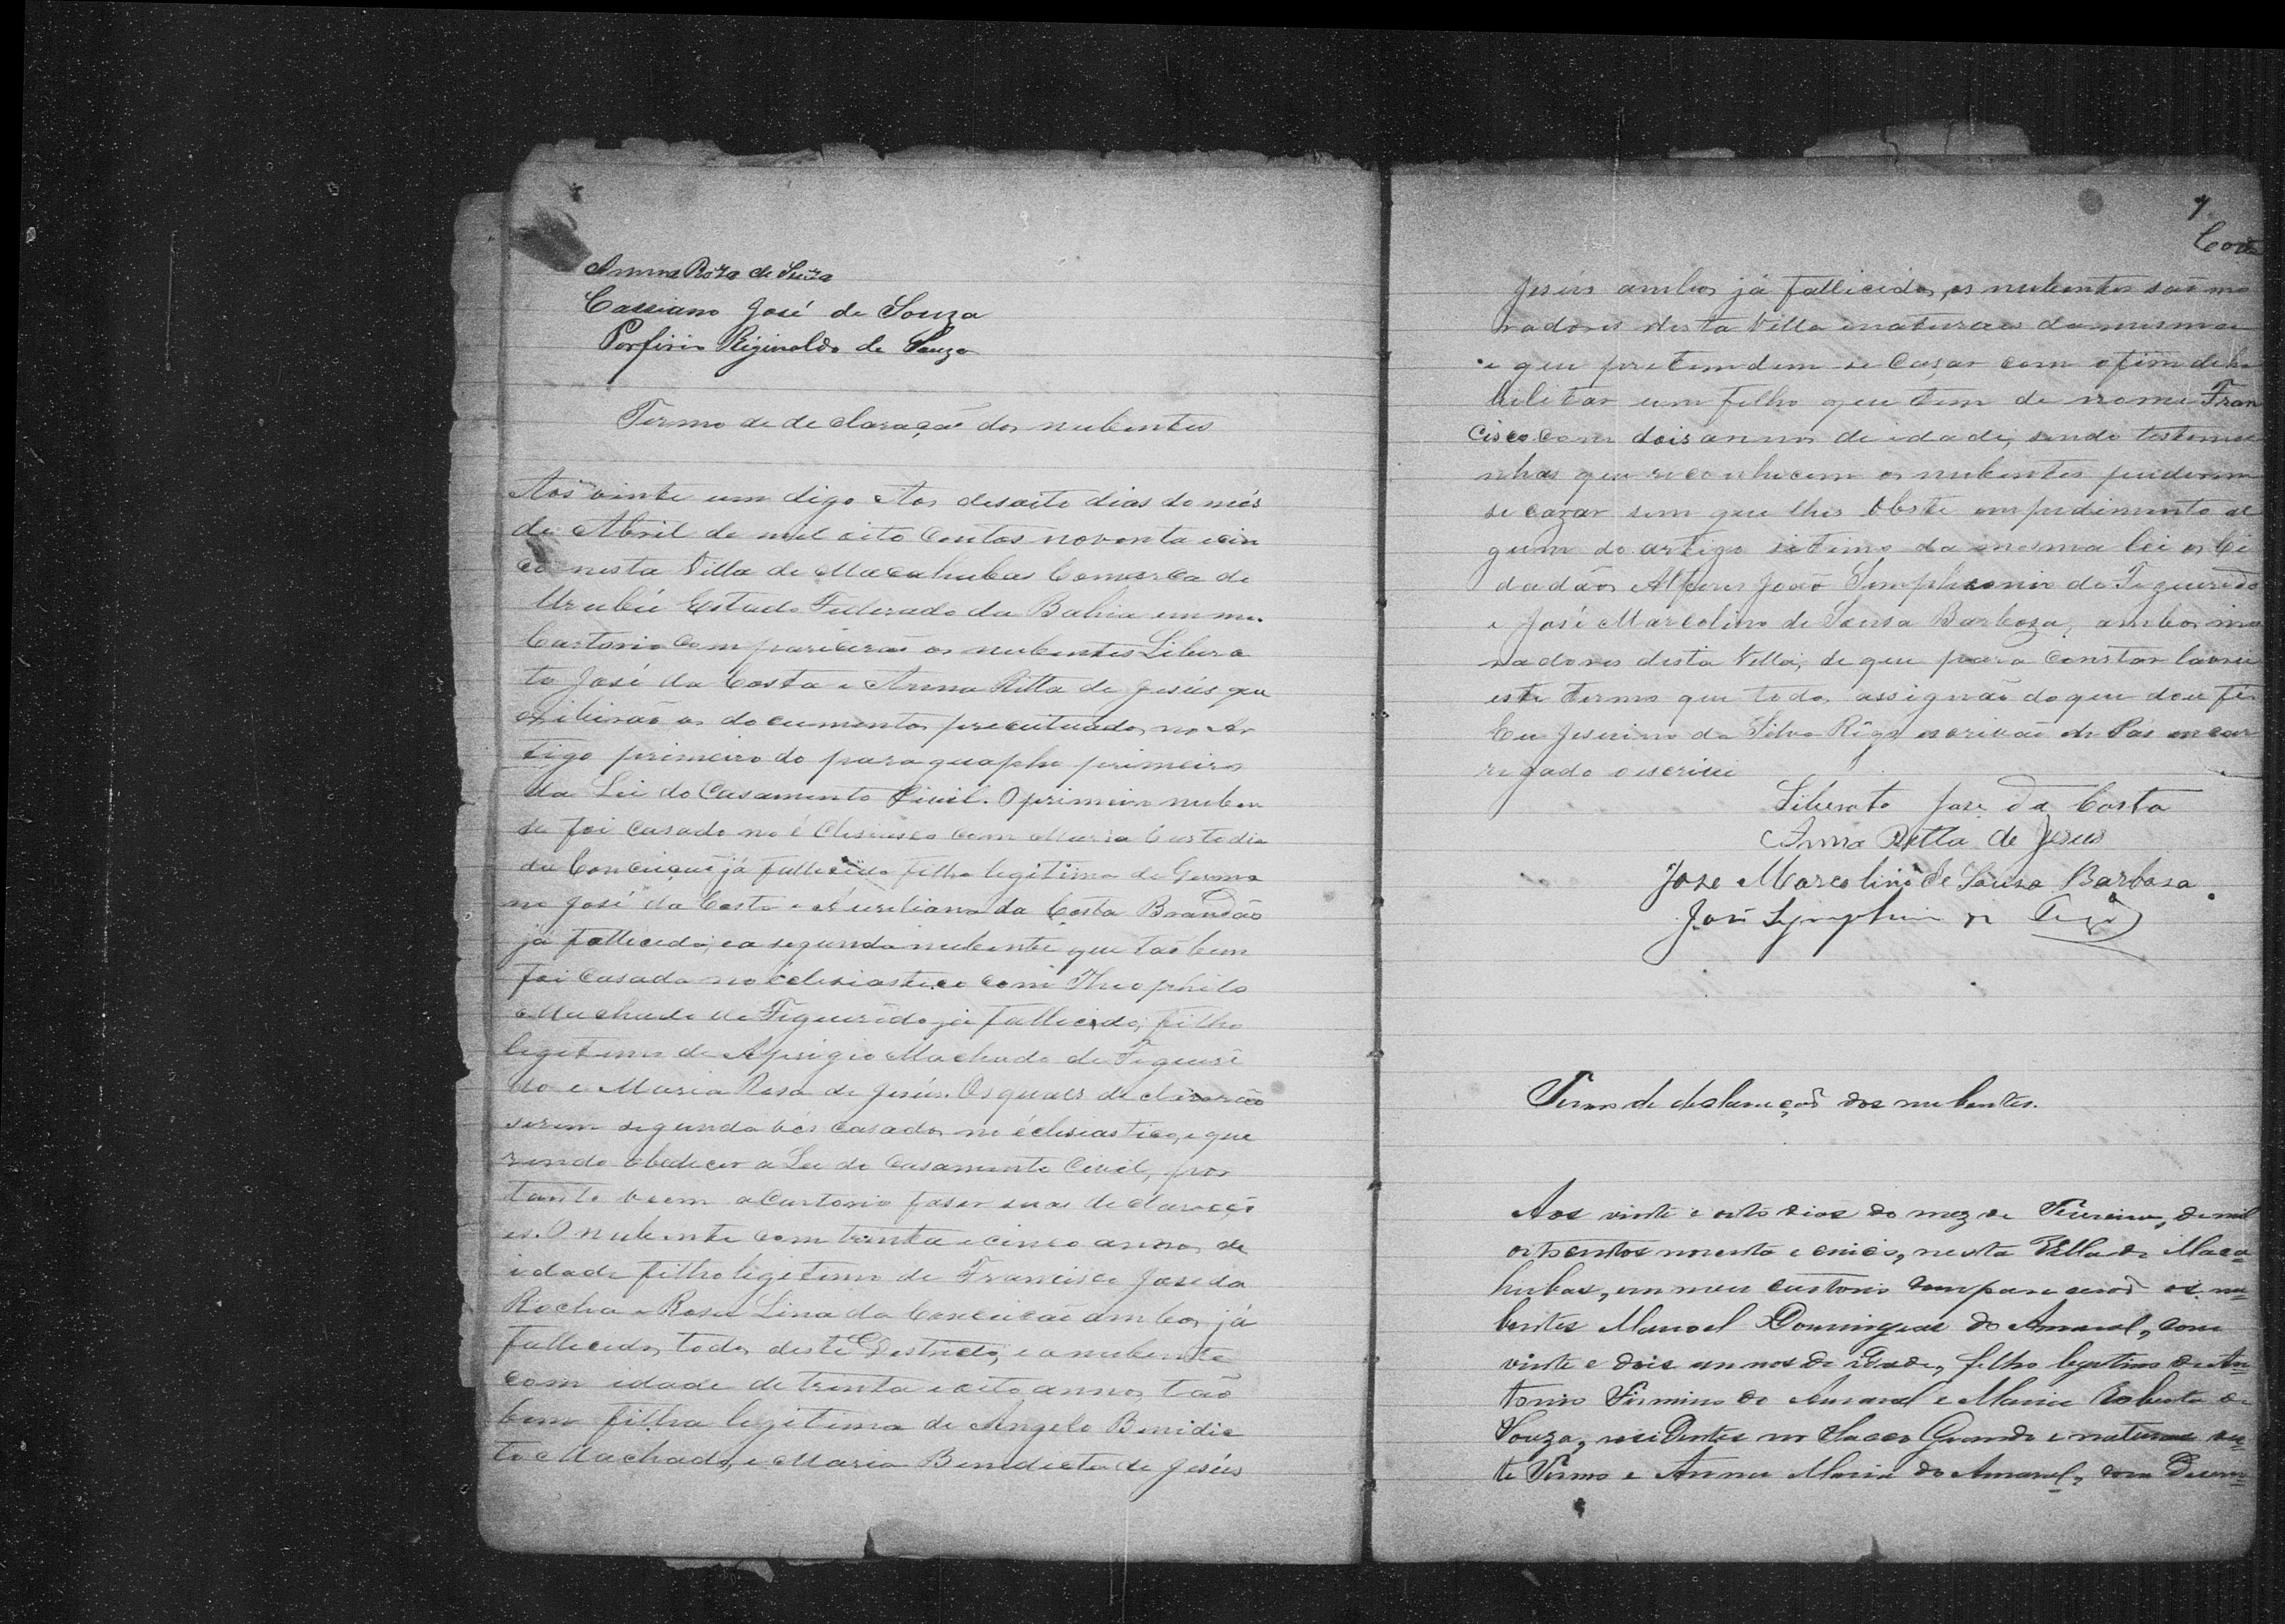 Anna Roza de Suza
Cassiano José de Souza
Porfirio Riginaldo de Souza
Termo de declaração dos nubentes
Aos vinte um digo Aos desoito dias do mês
de Abril de mil oito centos noventa e cin
co nesta Villa de Macahubas Comarca de
Urubú Estado Federado da Bahia em meu
Cartorio comparicerão os nubentes Libera
to José da Costa e Anna Ritta de Jesús que
exibirão os documentos no Ar
tigo primeiro do paragrapho primeiro
da Lei do Casamento Civil. O primeiro nuben
te foi casado no com Maria Custodia
da Conceição já fallecida filha legitima de Germa
no José da Costa e Aureliana da Costa Brandão
já fallecida, e a segunda nubente que tão bem
foi casada no eclesiastico com Theophilo
Machado de Figueirêdo já fallecido, filho
legitimo de Machado de Figueirê
do e Maria Rosa de Jesús. Os quaes declararão
serem segunda vês casados no eclesiastico, e que
rendo obedecer a Lei do Casamento Civil, por
tanto veem a Cartorio faser suas declaraçõ
es. O nubente com trinta e cinco annos de
idade filho legitimo de Francisco José da
Rocha e Rosa Lina da Conceição ambos já
fallecidos todos deste Destricto, e a nubente
com idade de trinta e oito annos, tão
bem filha legitima de Angelo Benidic
to Machado, e Maria Benedicta de Jesús
7
Jesús ambos já fallicidos, os nubentes são mo
radores desta Villa e naturaes da mesma
e que pretendem se casar com o fim de ha
bilitar um filho que tem de nome Fran
cisco com dois annos de idade, sendo testemu
nhas que reconhecem os nubentes puderem
se cazar sem que lhes obste empedimento al
gum do artigo sitimo da mesma lei os Ci
dadãos Alferes João Simphronio de Figueredo
e José Marcolino de Sousa Barboza, ambos mo
radores desta Villa, de que para constar lavrei
este termo que todos assignão do que dou fé.
Eu Jesuino da Silva Rêgo escrivão de Pás encar
regado o escrivi
Liberato Jose da Costa
Anna Ritta de Jesus
Jose Marcolino de Sousa Barbosa
João Symphronio de
Termo de declaração dos nubentes.
Aos vinte e oito dias do mez de Fevereiro, de mil
oitocentos noventa e cinco, nesta Villa de Maca-
hubas, em meu cartorio comparecerão os nu-
bentes Manoel Domingues do Amaral, com
vinte e dois annos de idade, filho legitimo de An-
tonio Firmino do Amaral e Maria de
Souza, residentes no Grande e naturaes des-
te Termo e Anna Maria do Amaral, com